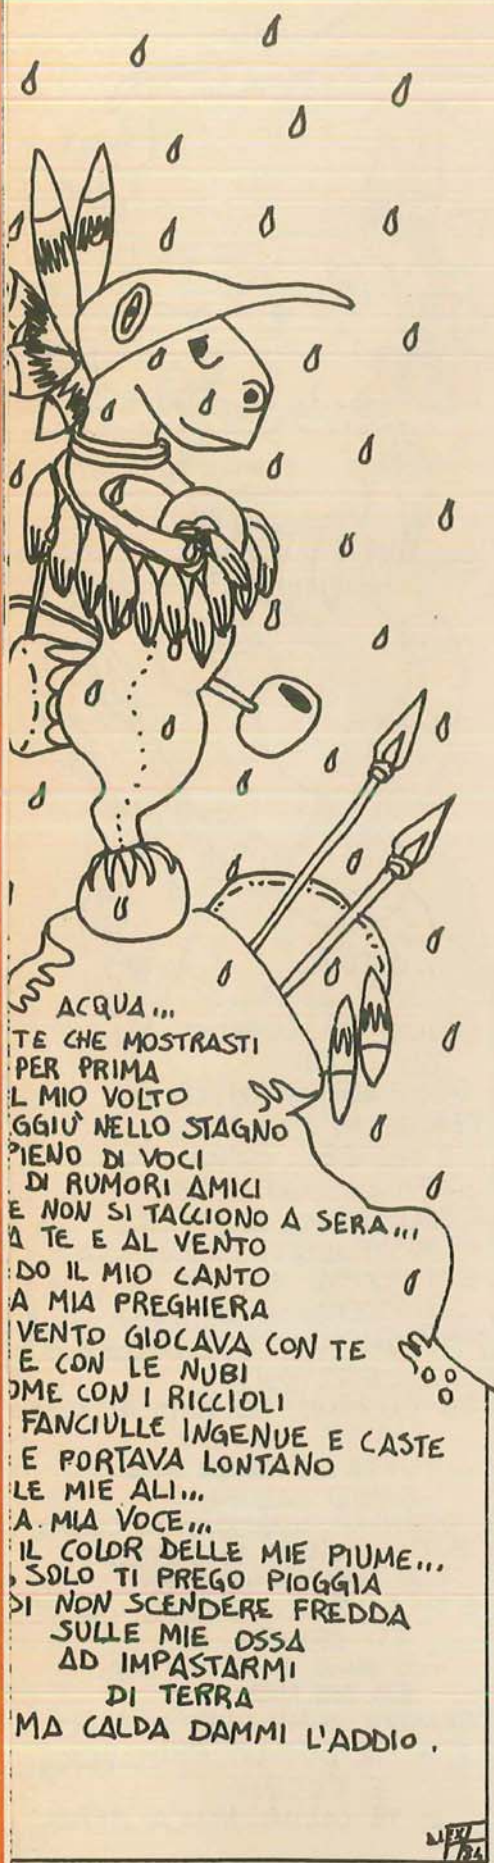 ACQUA...
TE CHE MOSTRASTI
PER PRIMA
L MIO VOLTO
GGIÙ NELLO STAGNO
PIENO DI VOCI
DI RUMORI AMICI
E NON SI TACCIONO A SERA...
A TE E AL VENTO
DO IL MIO CANTO
A MIA PREGHIERA
VENTO GIOCAVA CON TE
E CON LE NUBI
OME CON I RICCIOLI
FANCIULLE INGENUE E CASTE
E PORTAVA LONTANO
LE MIE ALI...
A MIA VOCE...
IL COLOR DELLE MIE PIUME...
SOLO TI PREGO PIOGGIA
DI NON SCENDERE FREDDA
SULLE MIE OSSA
AD IMPASTARMI
DI TERRA
MA CALDA DAMMI L'ADDIO.